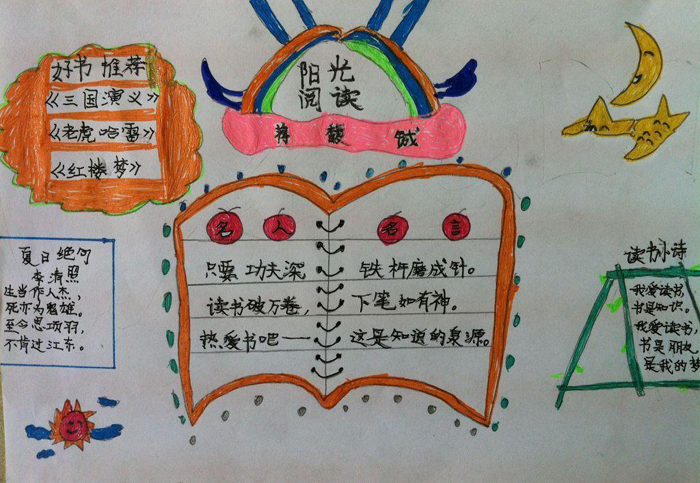 好书推荐
《三国演义》
《老虎哈雷》
《红楼梦》
阳光
阅读
蒋馥铖
名人名言
只要功夫深 铁杵磨成针。
读书破万卷, 下笔如有神。
热爱书吧—— 这是知识的泉源。
夏日绝句
李清照
生当作人杰,
死亦为鬼雄。
至今思项羽,
不肯过江东。
读书小诗
我爱读书,
书是知识。
我爱读书,
书是朋友
是我的梦